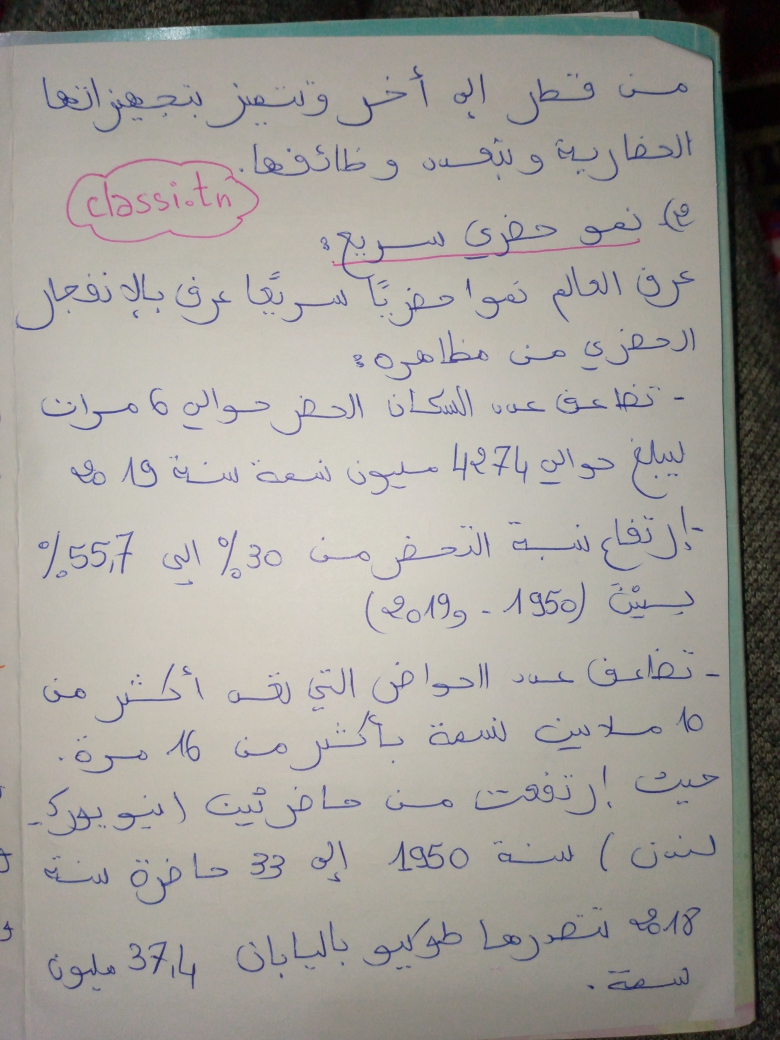 من قطر إلى أخر وتتميز بتجهيزاتها
الحضارية وبتعدد وظائفها.
classi.tn
2)- نمو حضري سريع:
عرف العالم نموا حضريًا سريعًا عرف بالإنفجار
الحضري من مظاهره:
- تضاعف عدد السكان الحضر حوالي 6 مرات
ليبلغ حوالي 4274 مليون نسمة سنة 2019
- إرتفاع نسبة التحضر من 30% الى 55,7%
بين (1950 - و2019)
- تضاعف عدد الحواض التي تعد أكثر من
10 ملايين نسمة بأكثر من 16 مرة.
حيث إرتفعت من حاضرتين (نيويورك-
لندن) سنة 1950 إلى 33 حاضرة سنة
2018 تتصدرها طوكيو باليابان 37,4 مليون
نسمة.